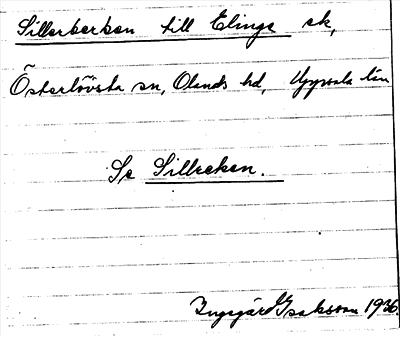 Sillerberken till Elinge ek,
Österlövsta sn, Olands hd, Uppsala län
Se Silleeken.
Ingegärd Isaksson 1936.